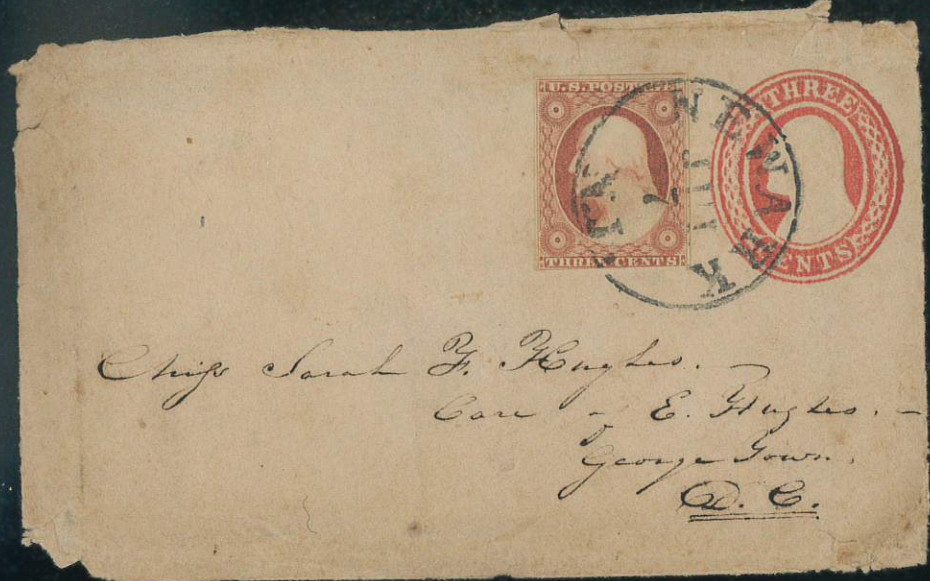 U.S. POSTAGE
THREE CENTS
NEWARK
JUL
7
THREE
CENTS
Miss Sarah F. Hughes.
Care of E. Hughes.
George Town.
D. C.